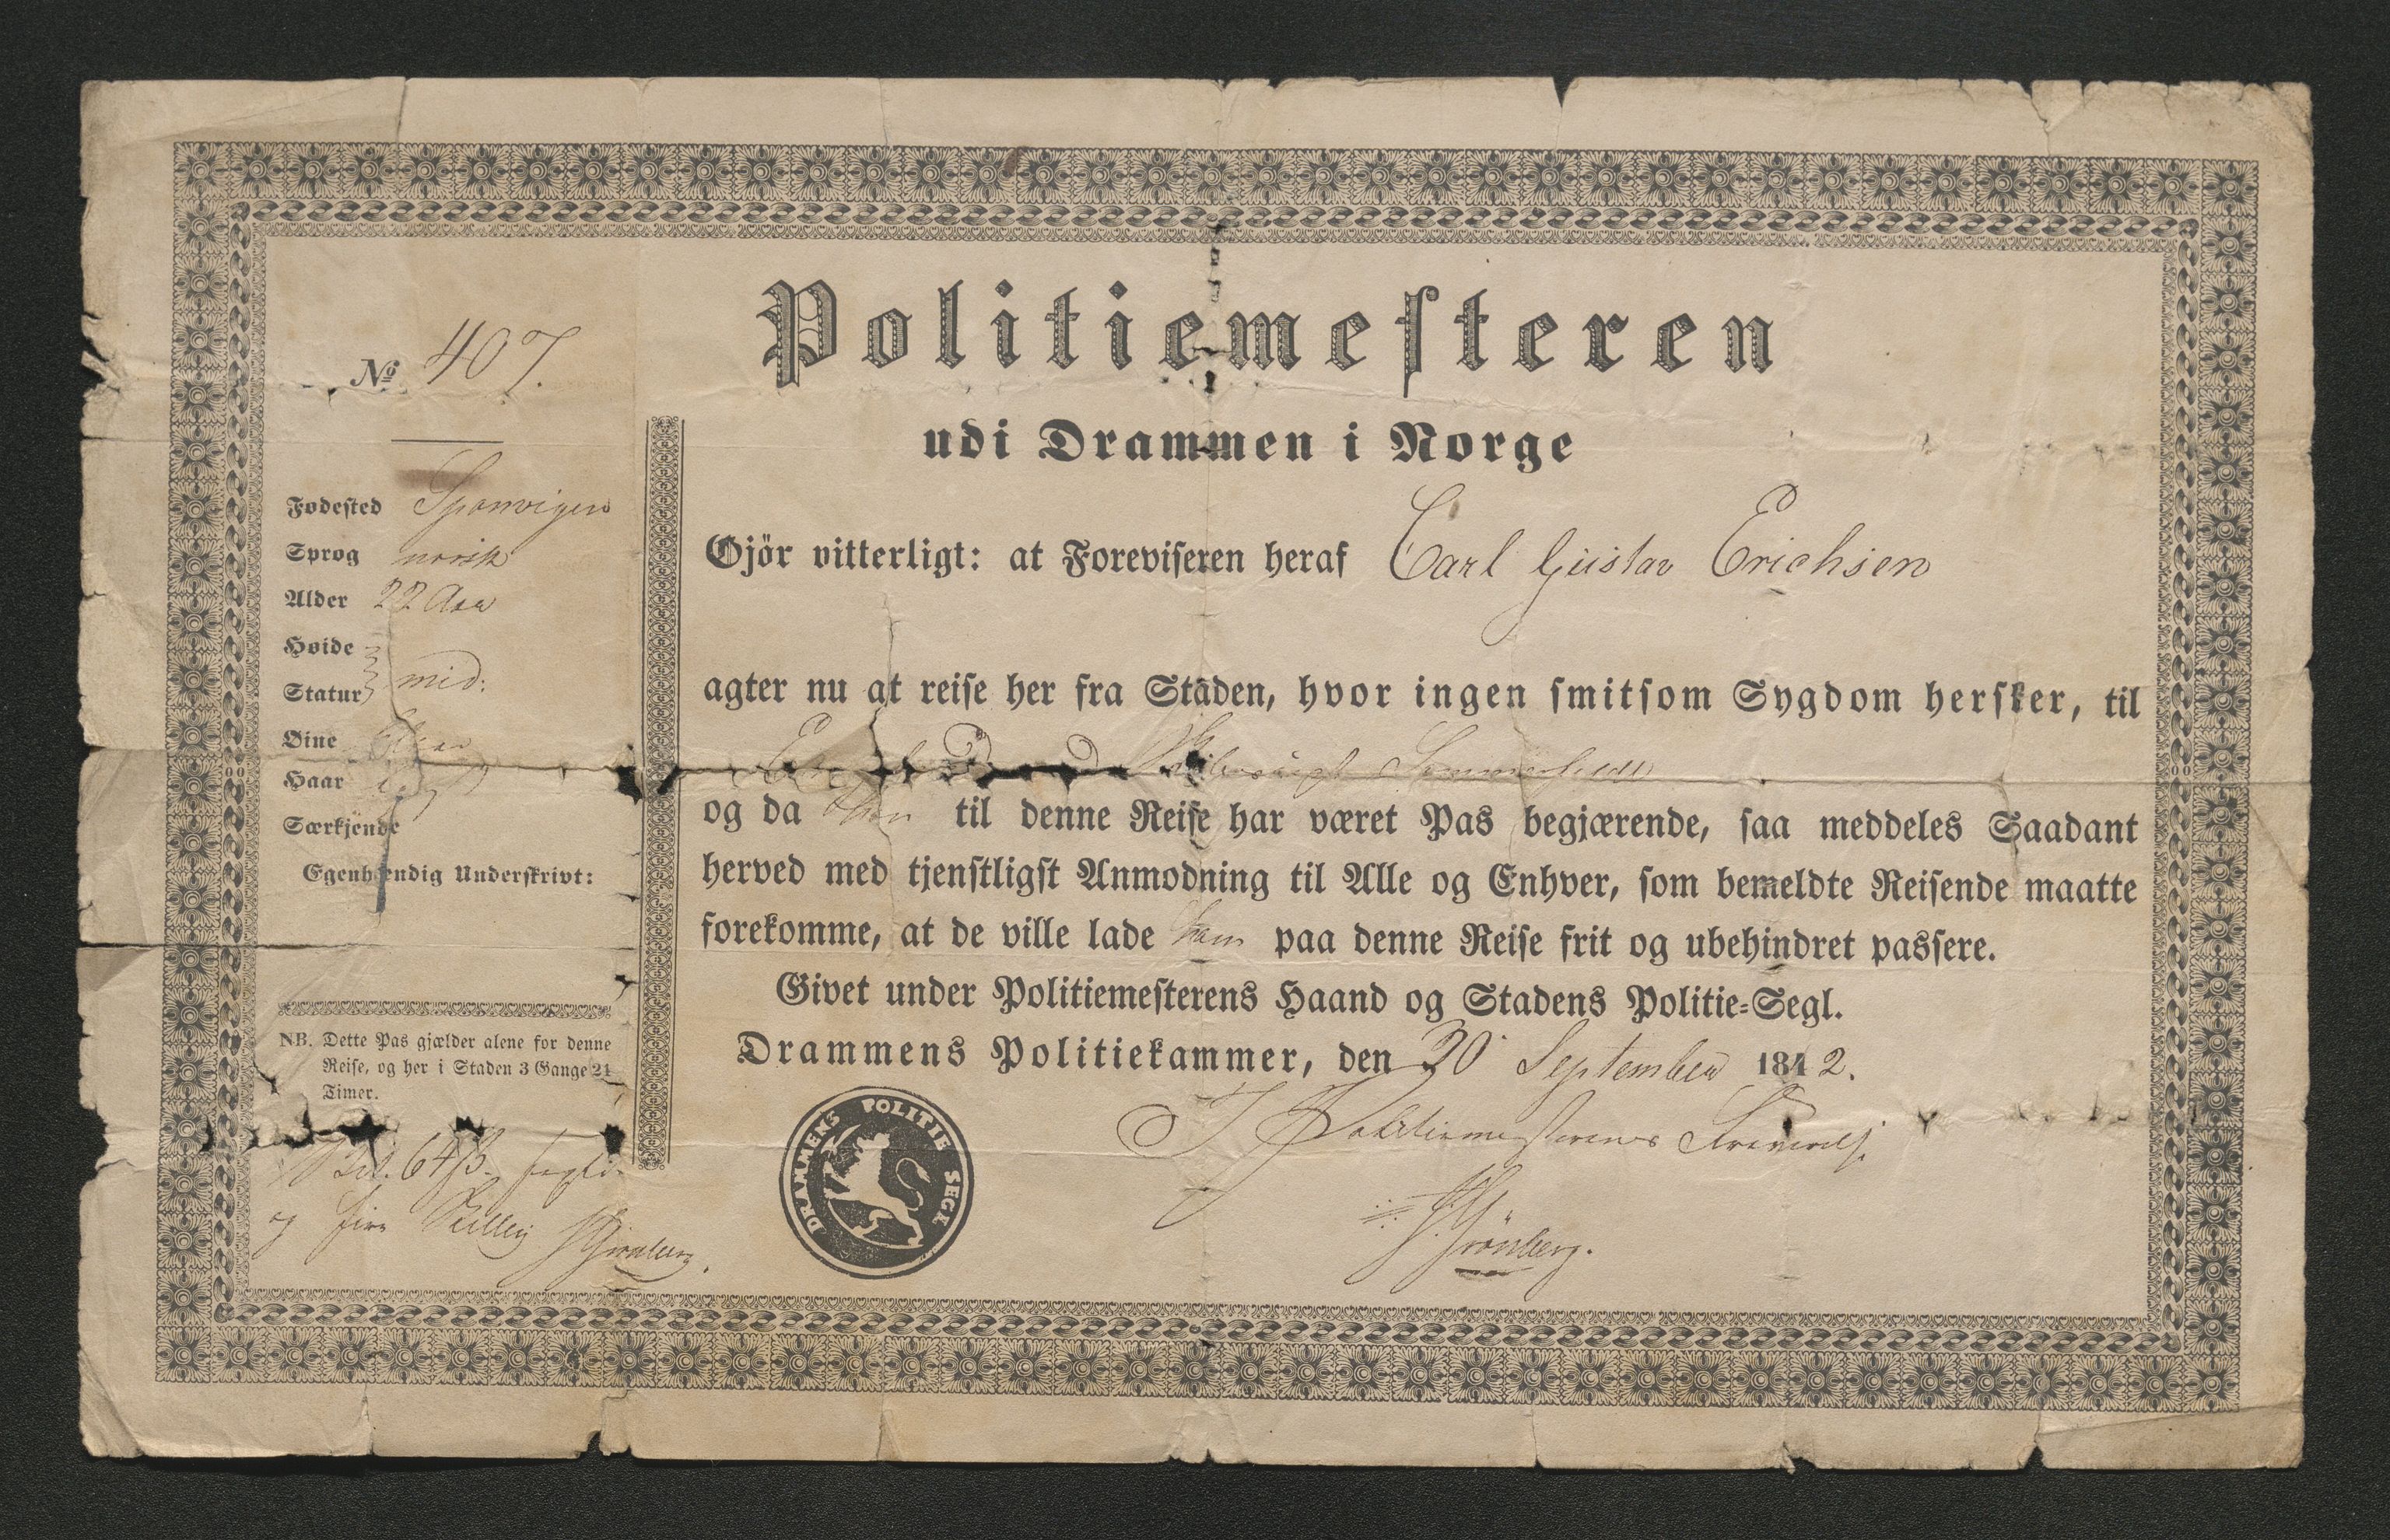 Politiemesteren
udi Drammen i Norge
No 407.
Fødested Spanvigen
Sprog norsk
Alder 22 Aar
Høide
Statur mid:
Øine
Haar
Særkjende
Egenhændig Underskrivt:
NB. Dette Pas gjælder alene for denne
Reise, og her i Staden 3 Gange 24
Timer.
64 ß.
og fire Skilling HGrönberg.
Gjör vitterligt: at Foreviseren heraf Carl Gustav Erichsen
agter nu at reise her fra Staden, hvor ingen smitsom Sygdom hersker, til
Sommerfeldt
og da han til denne Reise har været Pas begjærende, saa meddeles Saadant
herved med tjenstligst Anmodning til Alle og Enhver, som bemeldte Reisende maatte
forekomme, at de ville lade ham paa denne Reise frit og ubehindret passere.
Givet under Politiemesterens Haand og Stadens Politie-Segl.
Drammens Politiekammer, den 30 September 1842.
I Politiemesterens Fraværelse
HGrönberg.
DRAMMENS POLITIE SEGL